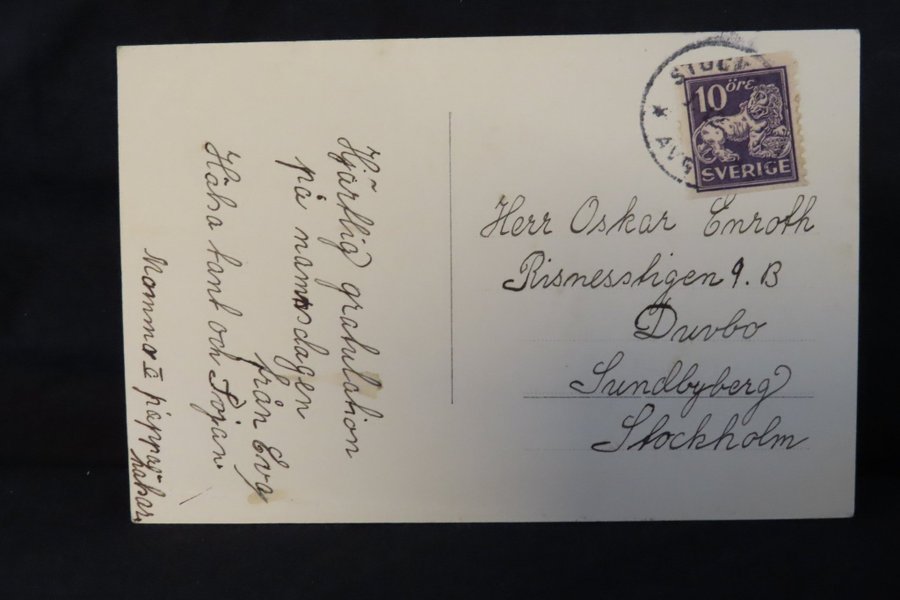 Hjärtlig gratulation
på namnsdagen
från Eva
Häha tant och Tojan
Momma o pappa
hahar
STOC
AVG
10 öre
SVERIGE
Herr Oskar Enroth
Risnesstigen 9. B
Duvbo
Sundbyberg
Stockholm